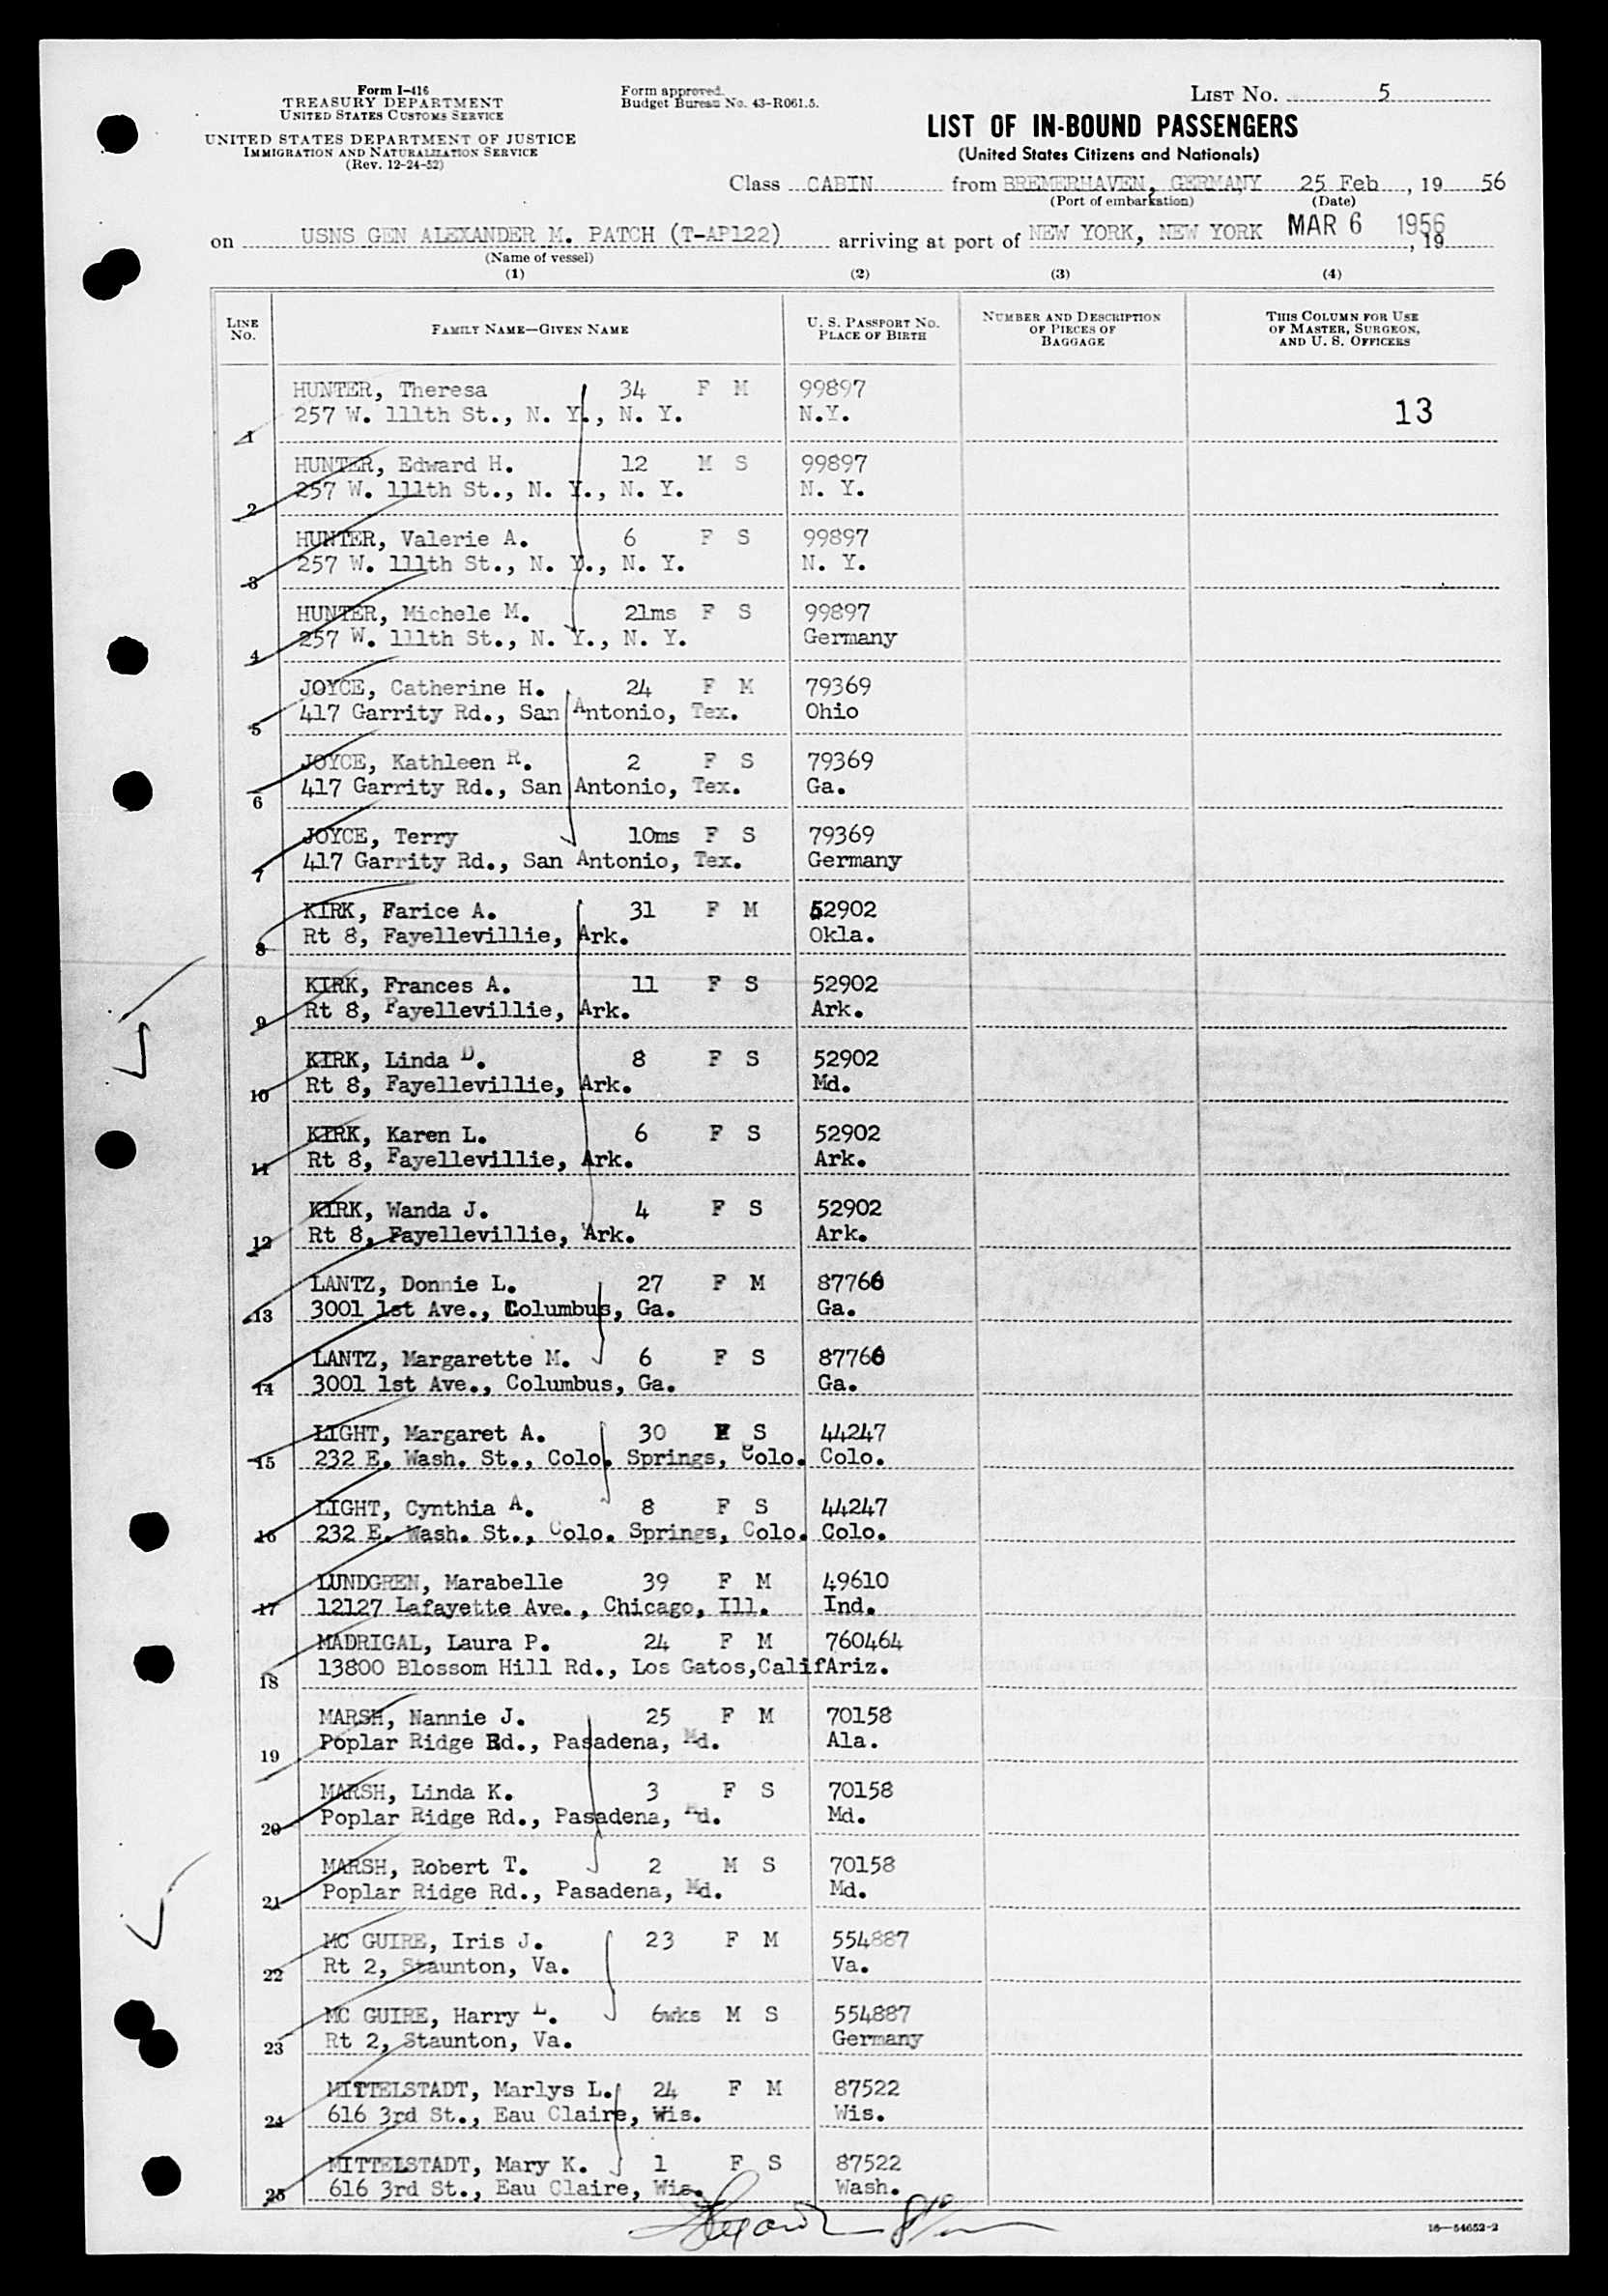 Form I-416
TREASURY DEPARTMENT
UNITED STATES CUSTOMS SERVICE
UNITED STATES DEPARTMENT OF JUSTICE
IMMIGRATION AND NATURALIZATION SERVICE
(Rev. 12-24-52)
Form approved.
Budget Bureau No. 43-R061.5.
LIST No. 5
LIST OF IN-BOUND PASSENGERS
(United States Citizens and Nationals)
Class CABIN from BREMERHAVEN, GERMANY 25 Feb, 19 56
(Port of embarkation) (Date)
on USNS GEN ALEXANDER M. PATCH (T-AP122) arriving at port of NEW YORK, NEW YORK MAR 6 1956, 19
(Name of vessel)
(1) (2) (3) (4)
LINE No. FAMILY NAME—GIVEN NAME U. S. PASSPORT NO. PLACE OF BIRTH NUMBER AND DESCRIPTION OF PIECES OF BAGGAGE THIS COLUMN FOR USE OF MASTER, SURGEON, AND U. S. OFFICERS
HUNTER, Theresa 34 F M 99897
257 W. 111th St., N. Y., N. Y. N.Y. 13
1
HUNTER, Edward H. 12 M S 99897
257 W. 111th St., N. Y., N. Y. N. Y.
2
HUNTER, Valerie A. 6 F S 99897
257 W. 111th St., N. Y., N. Y. N. Y.
3
HUNTER, Michele M. 21ms F S 99897
257 W. 111th St., N. Y., N. Y. Germany
4
JOYCE, Catherine H. 24 F M 79369
417 Garrity Rd., San Antonio, Tex. Ohio
5
JOYCE, Kathleen R. 2 F S 79369
417 Garrity Rd., San Antonio, Tex. Ga.
6
JOYCE, Terry 10ms F S 79369
417 Garrity Rd., San Antonio, Tex. Germany
7
KIRK, Farice A. 31 F M 52902
Rt 8, Fayellevillie, Ark. Okla.
8
KIRK, Frances A. 11 F S 52902
Rt 8, Fayellevillie, Ark. Ark.
9
KIRK, Linda D. 8 F S 52902
Rt 8, Fayellevillie, Ark. Md.
10
KIRK, Karen L. 6 F S 52902
Rt 8, Fayellevillie, Ark. Ark.
11
KIRK, Wanda J. 4 F S 52902
Rt 8, Fayellevillie, Ark. Ark.
12
LANTZ, Donnie L. 27 F M 87766
3001 1st Ave., Columbus, Ga. Ga.
13
LANTZ, Margarette M. 6 F S 87766
3001 1st Ave., Columbus, Ga. Ga.
14
LIGHT, Margaret A. 30 F S 44247
232 E. Wash. St., Colo. Springs, Colo. Colo.
15
LIGHT, Cynthia A. 8 F S 44247
232 E. Wash. St., Colo. Springs, Colo. Colo.
16
LUNDGREN, Marabelle 39 F M 49610
12127 Lafayette Ave., Chicago, Ill. Ind.
17
MADRIGAL, Laura P. 24 F M 760464
13800 Blossom Hill Rd., Los Gatos,Calif Ariz.
18
MARSH, Nannie J. 25 F M 70158
Poplar Ridge Rd., Pasadena, Md. Ala.
19
MARSH, Linda K. 3 F S 70158
Poplar Ridge Rd., Pasadena, Md. Md.
20
MARSH, Robert T. 2 M S 70158
Poplar Ridge Rd., Pasadena, Md. Md.
21
MC GUIRE, Iris J. 23 F M 554887
Rt 2, Staunton, Va. Va.
22
MC GUIRE, Harry L. 6wks M S 554887
Rt 2, Staunton, Va. Germany
23
MITTELSTADT, Marlys L. 24 F M 87522
616 3rd St., Eau Claire, Wis. Wis.
24
MITTELSTADT, Mary K. 1 F S 87522
616 3rd St., Eau Claire, Wis. Wash.
25
16—54652-2